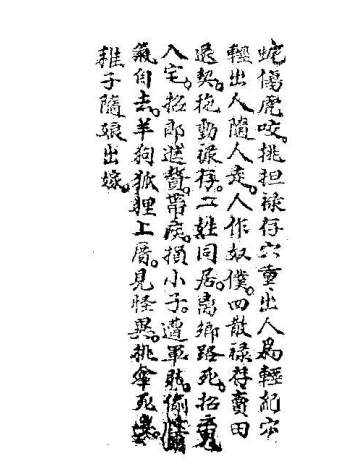 蛇傷虎咬。挑担祿存穴重。出人為輕紀宗
輕出人隨人走。人作奴僕。四散祿存賣田
退契。拖動祿存。二姓同居。离鄉路死。招
入宅。招郎進贅。帶疾。損小子。遭軍賊。偷
氣自去。羊狗狐狸工厝見怪異。挑傘死
雅子隨娘出嫁。